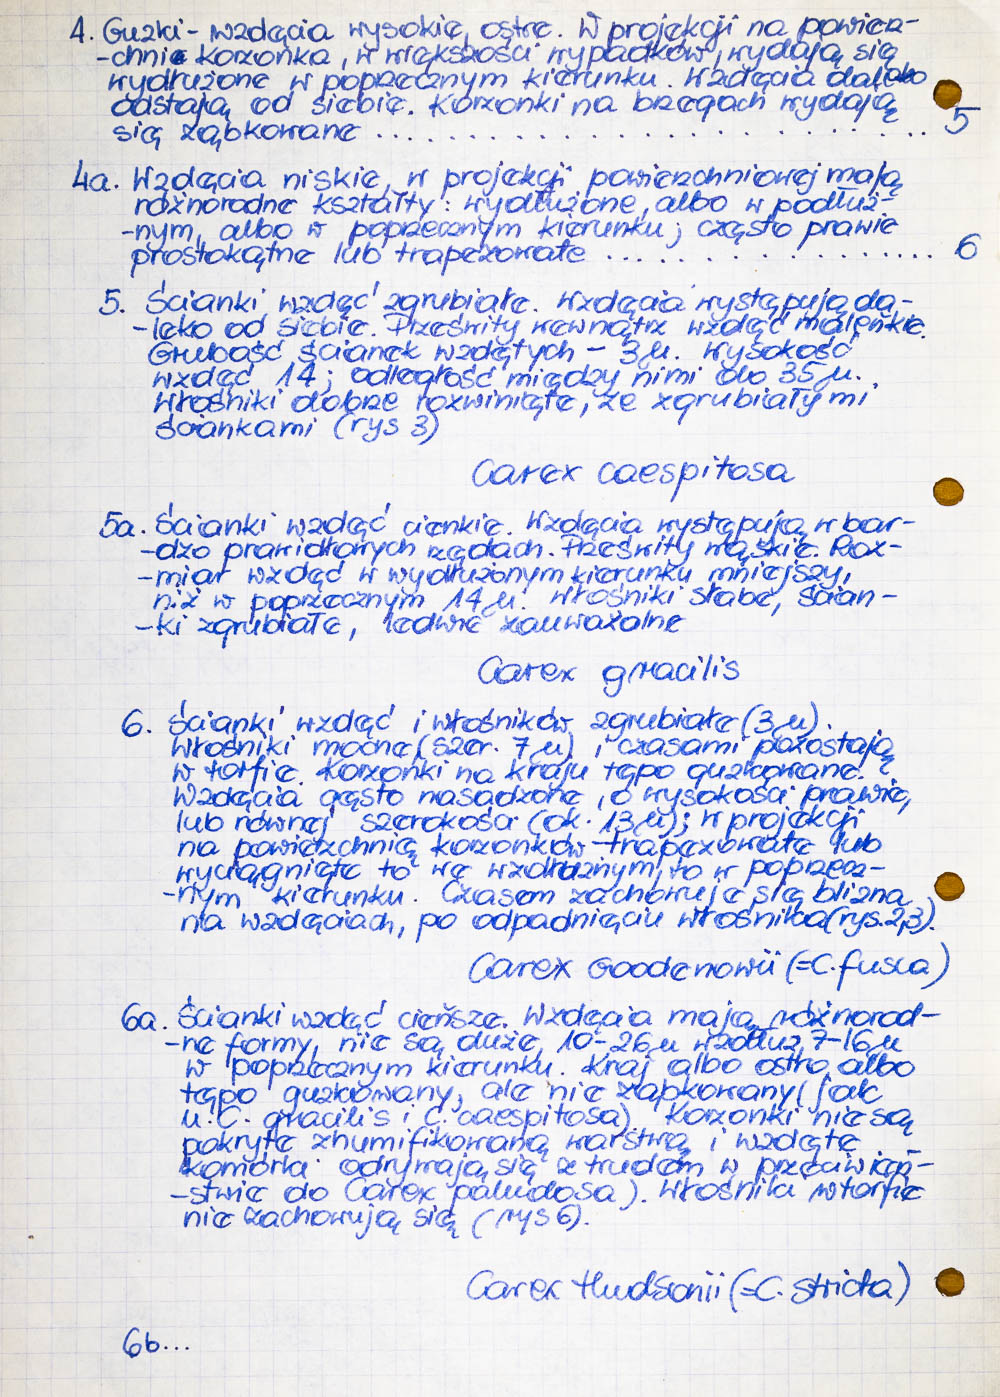 4. Guzki - wzdęcia wysokie, ostre. W projekcji na powierz-
-chnie korzonka, w większości wypadków, wydają się
wydłużone w poprzecznym kierunku. Wzdęcia daleko
odstają od siebie. Korzonki na brzegach wydają
się ząbkowane .............................. 5
4a. Wzdęcia niskie, w projekcji powierzchniowej mają
różnorodne kształty: wydłużone, albo w podłuż-
-nym, albo w poprzecznym kierunku; często prawie
prostokątne lub trapezowate .................. 6
5. Ścianki wzdęć zgrubiałe. Wzdęcia występują da-
-leko od siebie. Prześwity wewnątrz wzdęć maleńkie.
Grubość ścianek wzdętych - 3 µ. Wysokość
wzdęć 14; odległość między nimi do 35 µ.
Włośniki dobrze rozwinięte, ze zgrubiałymi
ściankami (rys 3)
Carex caespitosa
5a. Ścianki wzdęć cienkie. Wzdęcia występują w bar-
-dzo prawidłowych rzędach. Prześwity wąskie. Roz-
-miar wzdęć w wydłużonym kierunku mniejszy,
niż w poprzecznym 14 µ. Włośniki słabe, ścian-
-ki zgrubiałe, ledwie zauważalne
Carex gracilis
6. Ścianki wzdęć i włośników zgrubiałe (3 µ).
Włośniki mocne (szer. 7 µ) i czasami pozostają
w torfie. Korzonki na kraju tępo guzkowane.
Wzdęcia gęsto nasadzone, o wysokości prawie,
lub równej szerokości (ok. 13 µ); w projekcji
na powierzchnię korzonków trapezowate lub
wyciągnięte to we wzdłużnym, to w poprzecz-
-nym kierunku. Czasem zachowuje się blizna
na wzdęciach, po odpadnięciu włośnika (rys. 2,3).
Carex Goodenowii (=C. fusca)
6a. Ścianki wzdęć cieńsze. Wzdęcia mają różnorod-
-ne formy, nie są duże, 10-26 µ wzdłuż, 7-16 µ
w poprzecznym kierunku. Kraj albo ostro, albo
tępo guzkowany, ale nie ząbkowany (jak
u C. gracilis i C. caespitosa). Korzonki nie są
pokryte zhumifikowaną warstwą i wzdęte
komórki odrywają się z trudem w przeciwień-
-stwie do Carex paludosa). Włośniki w torfie
nie zachowują się (rys 6).
Carex Hudsonii (=C. stricta)
6b...